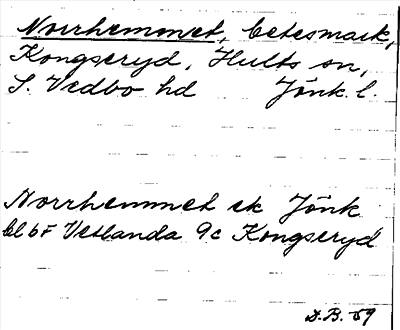 Norrhemmet, betesmark,
Kongseryd, Hults sn,
S. Vedbo hd Jönk. l.
Norrhemmet ek Jönk
bl 6F Vetlanda 9c Kongseryd
D.B. 59